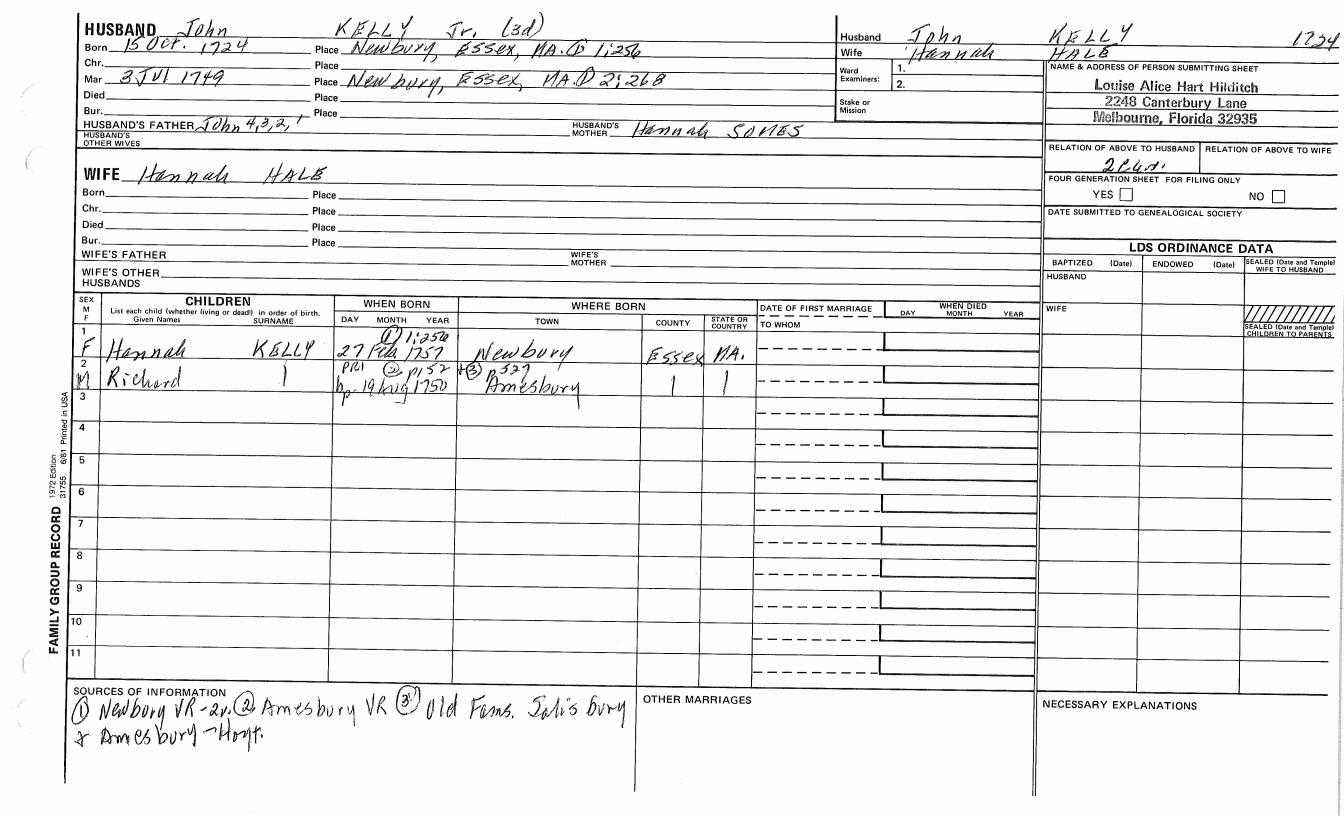 HUSBAND John KELLY Jr. (3d)
Born 15 Oct. 1724 Place Newbury, Essex, MA. ① 1:256
Chr. Place
Mar 3 Jul 1749 Place Newbury, Essex, MA. ① 2:268
Died Place
Bur. Place
HUSBAND'S FATHER John 4,3,2,1 HUSBAND'S MOTHER Hannah SOMES
HUSBAND'S OTHER WIVES
Husband John KELLY 1724
Wife Hannah HALE
Ward Examiners: 1.
2.
Stake or Mission
NAME & ADDRESS OF PERSON SUBMITTING SHEET
Louise Alice Hart Hilditch
2248 Canterbury Lane
Melbourne, Florida 32935
RELATION OF ABOVE TO HUSBAND RELATION OF ABOVE TO WIFE
FOUR GENERATION SHEET FOR FILING ONLY
YES NO
DATE SUBMITTED TO GENEALOGICAL SOCIETY
WIFE Hannah HALE
Born Place
Chr. Place
Died Place
Bur. Place
WIFE'S FATHER WIFE'S MOTHER
WIFE'S OTHER HUSBANDS
LDS ORDINANCE DATA
BAPTIZED (Date) ENDOWED (Date) SEALED (Date and Temple) WIFE TO HUSBAND
HUSBAND
WIFE
SEALED (Date and Temple) CHILDREN TO PARENTS
SEX M F
CHILDREN
List each child (whether living or dead) in order of birth.
Given Names SURNAME
WHEN BORN
DAY MONTH YEAR
WHERE BORN
TOWN COUNTY STATE OR COUNTRY
DATE OF FIRST MARRIAGE
TO WHOM
WHEN DIED
DAY MONTH YEAR
① 1:256
1 F Hannah KELLY 27 Feb 1757 Newbury Essex MA.
PR1 ② p152 + ③ p527
2 M Richard bp 19 Aug 1750 Amesbury
3
4
5
6
7
8
9
10
11
FAMILY GROUP RECORD 1972 Edition 31755 6/81 Printed in USA
SOURCES OF INFORMATION
① Newbury VR-2v. ② Amesbury VR ③ Old Fams. Salisbury
& Amesbury - Hoyt.
OTHER MARRIAGES
NECESSARY EXPLANATIONS